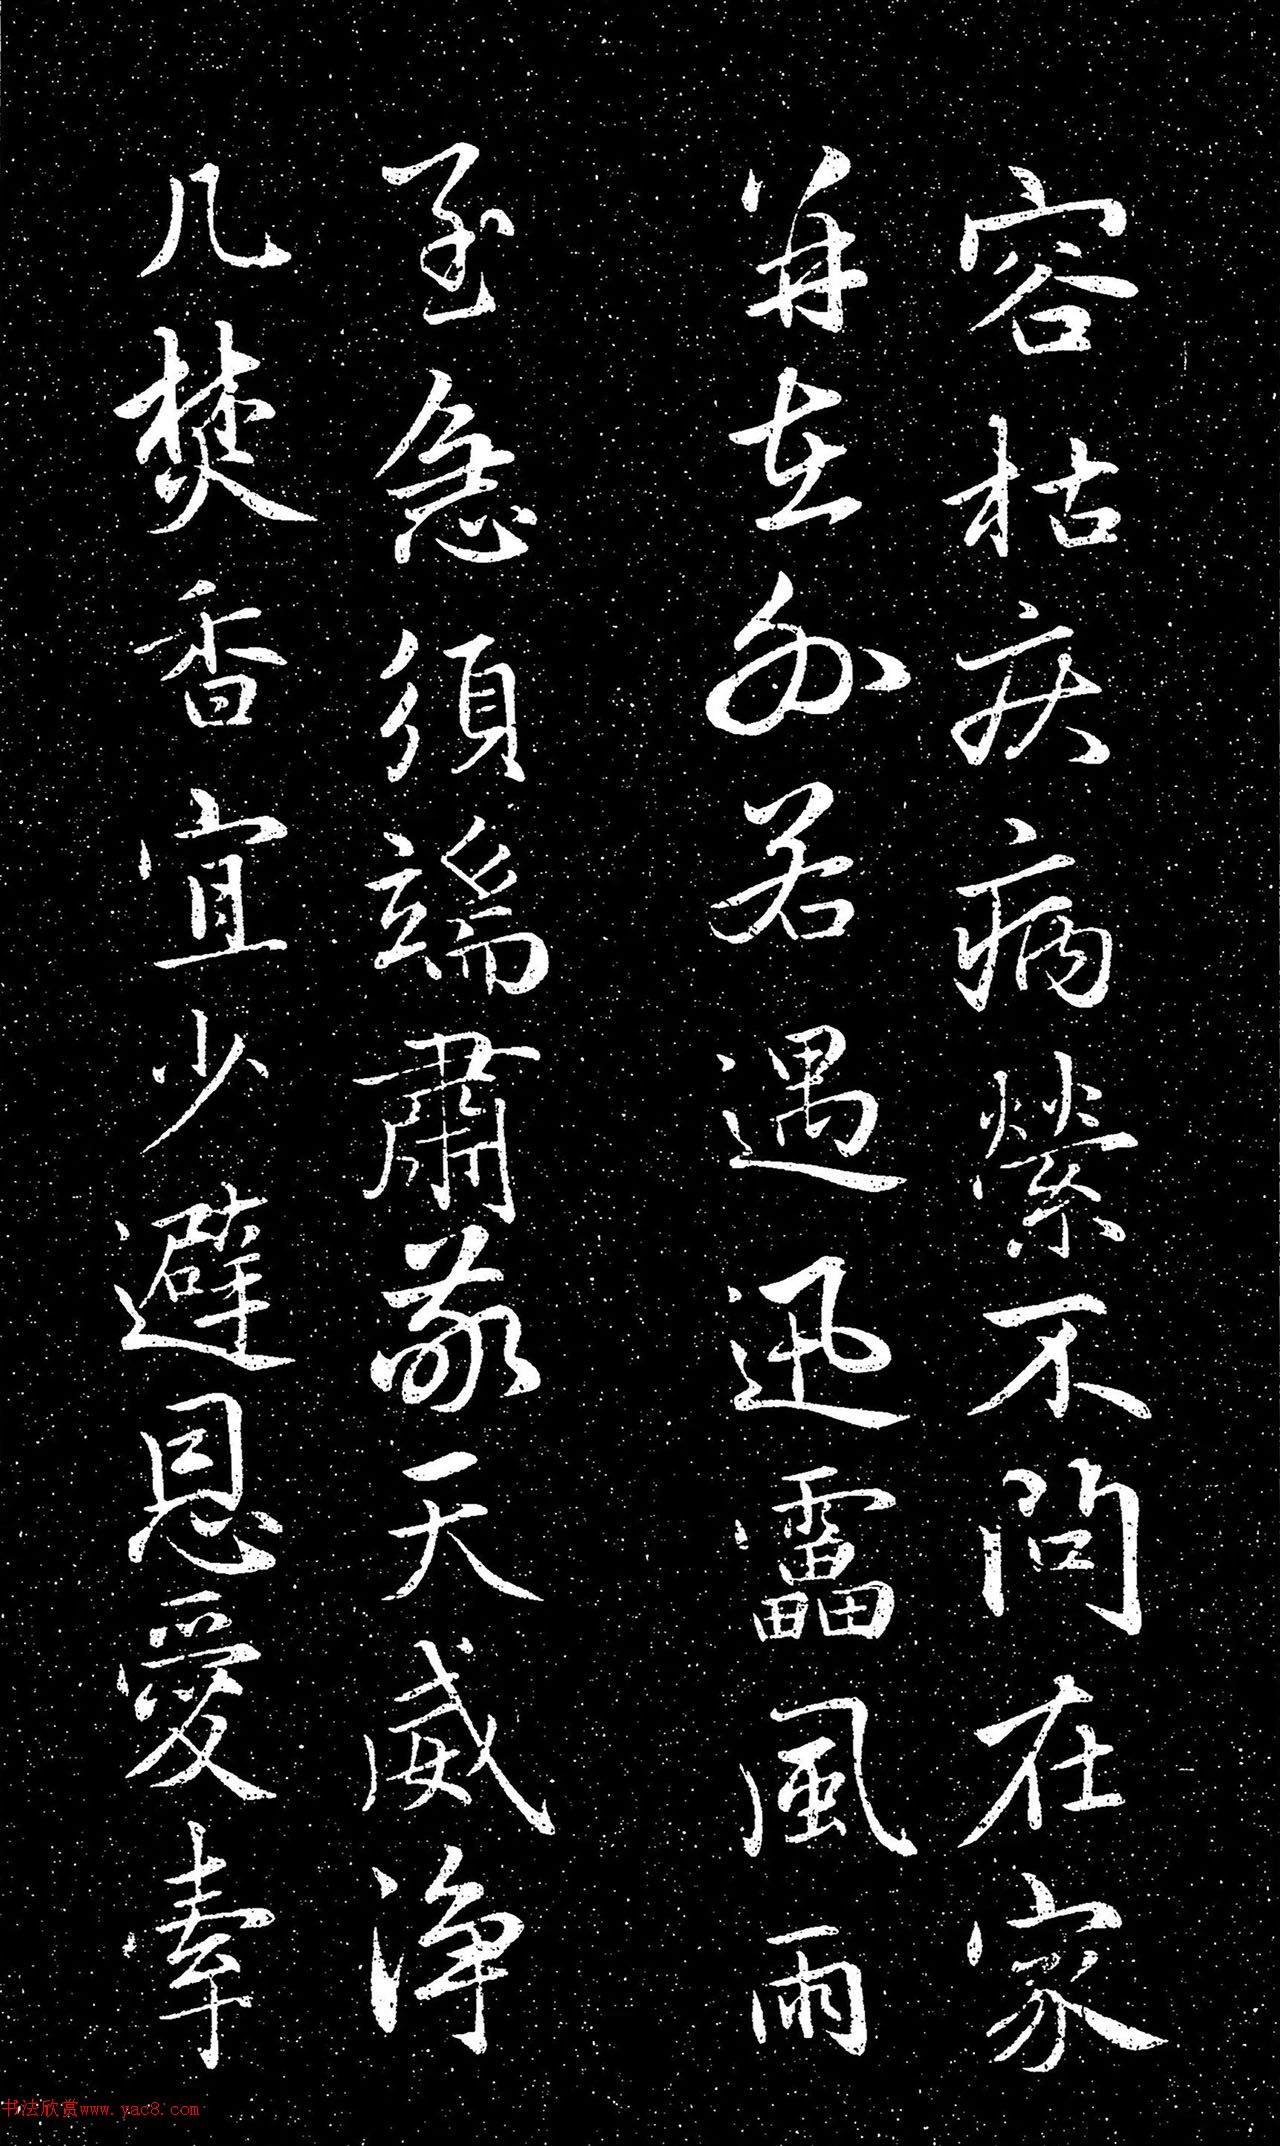 容枯疾病縈不問在家
并在外若遇迅靁風雨
至急須端肅敬天威淨
几焚香宜少避恩愛牽
书法欣赏www.yac8.com